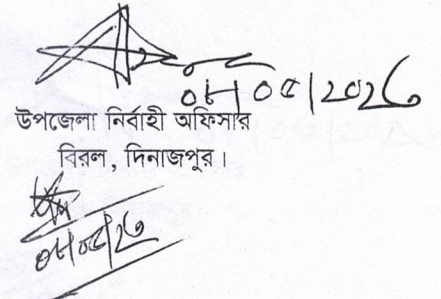 ০৮/০৫/২০২৬
উপজেলা নির্বাহী অফিসার
বিরল, দিনাজপুর।
০৮/০৫/২৬